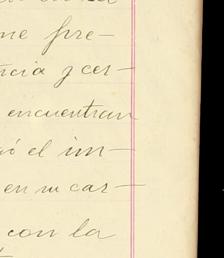 me pre-
ncia y cer-
encuentran
ó el im-
en su car-
con la